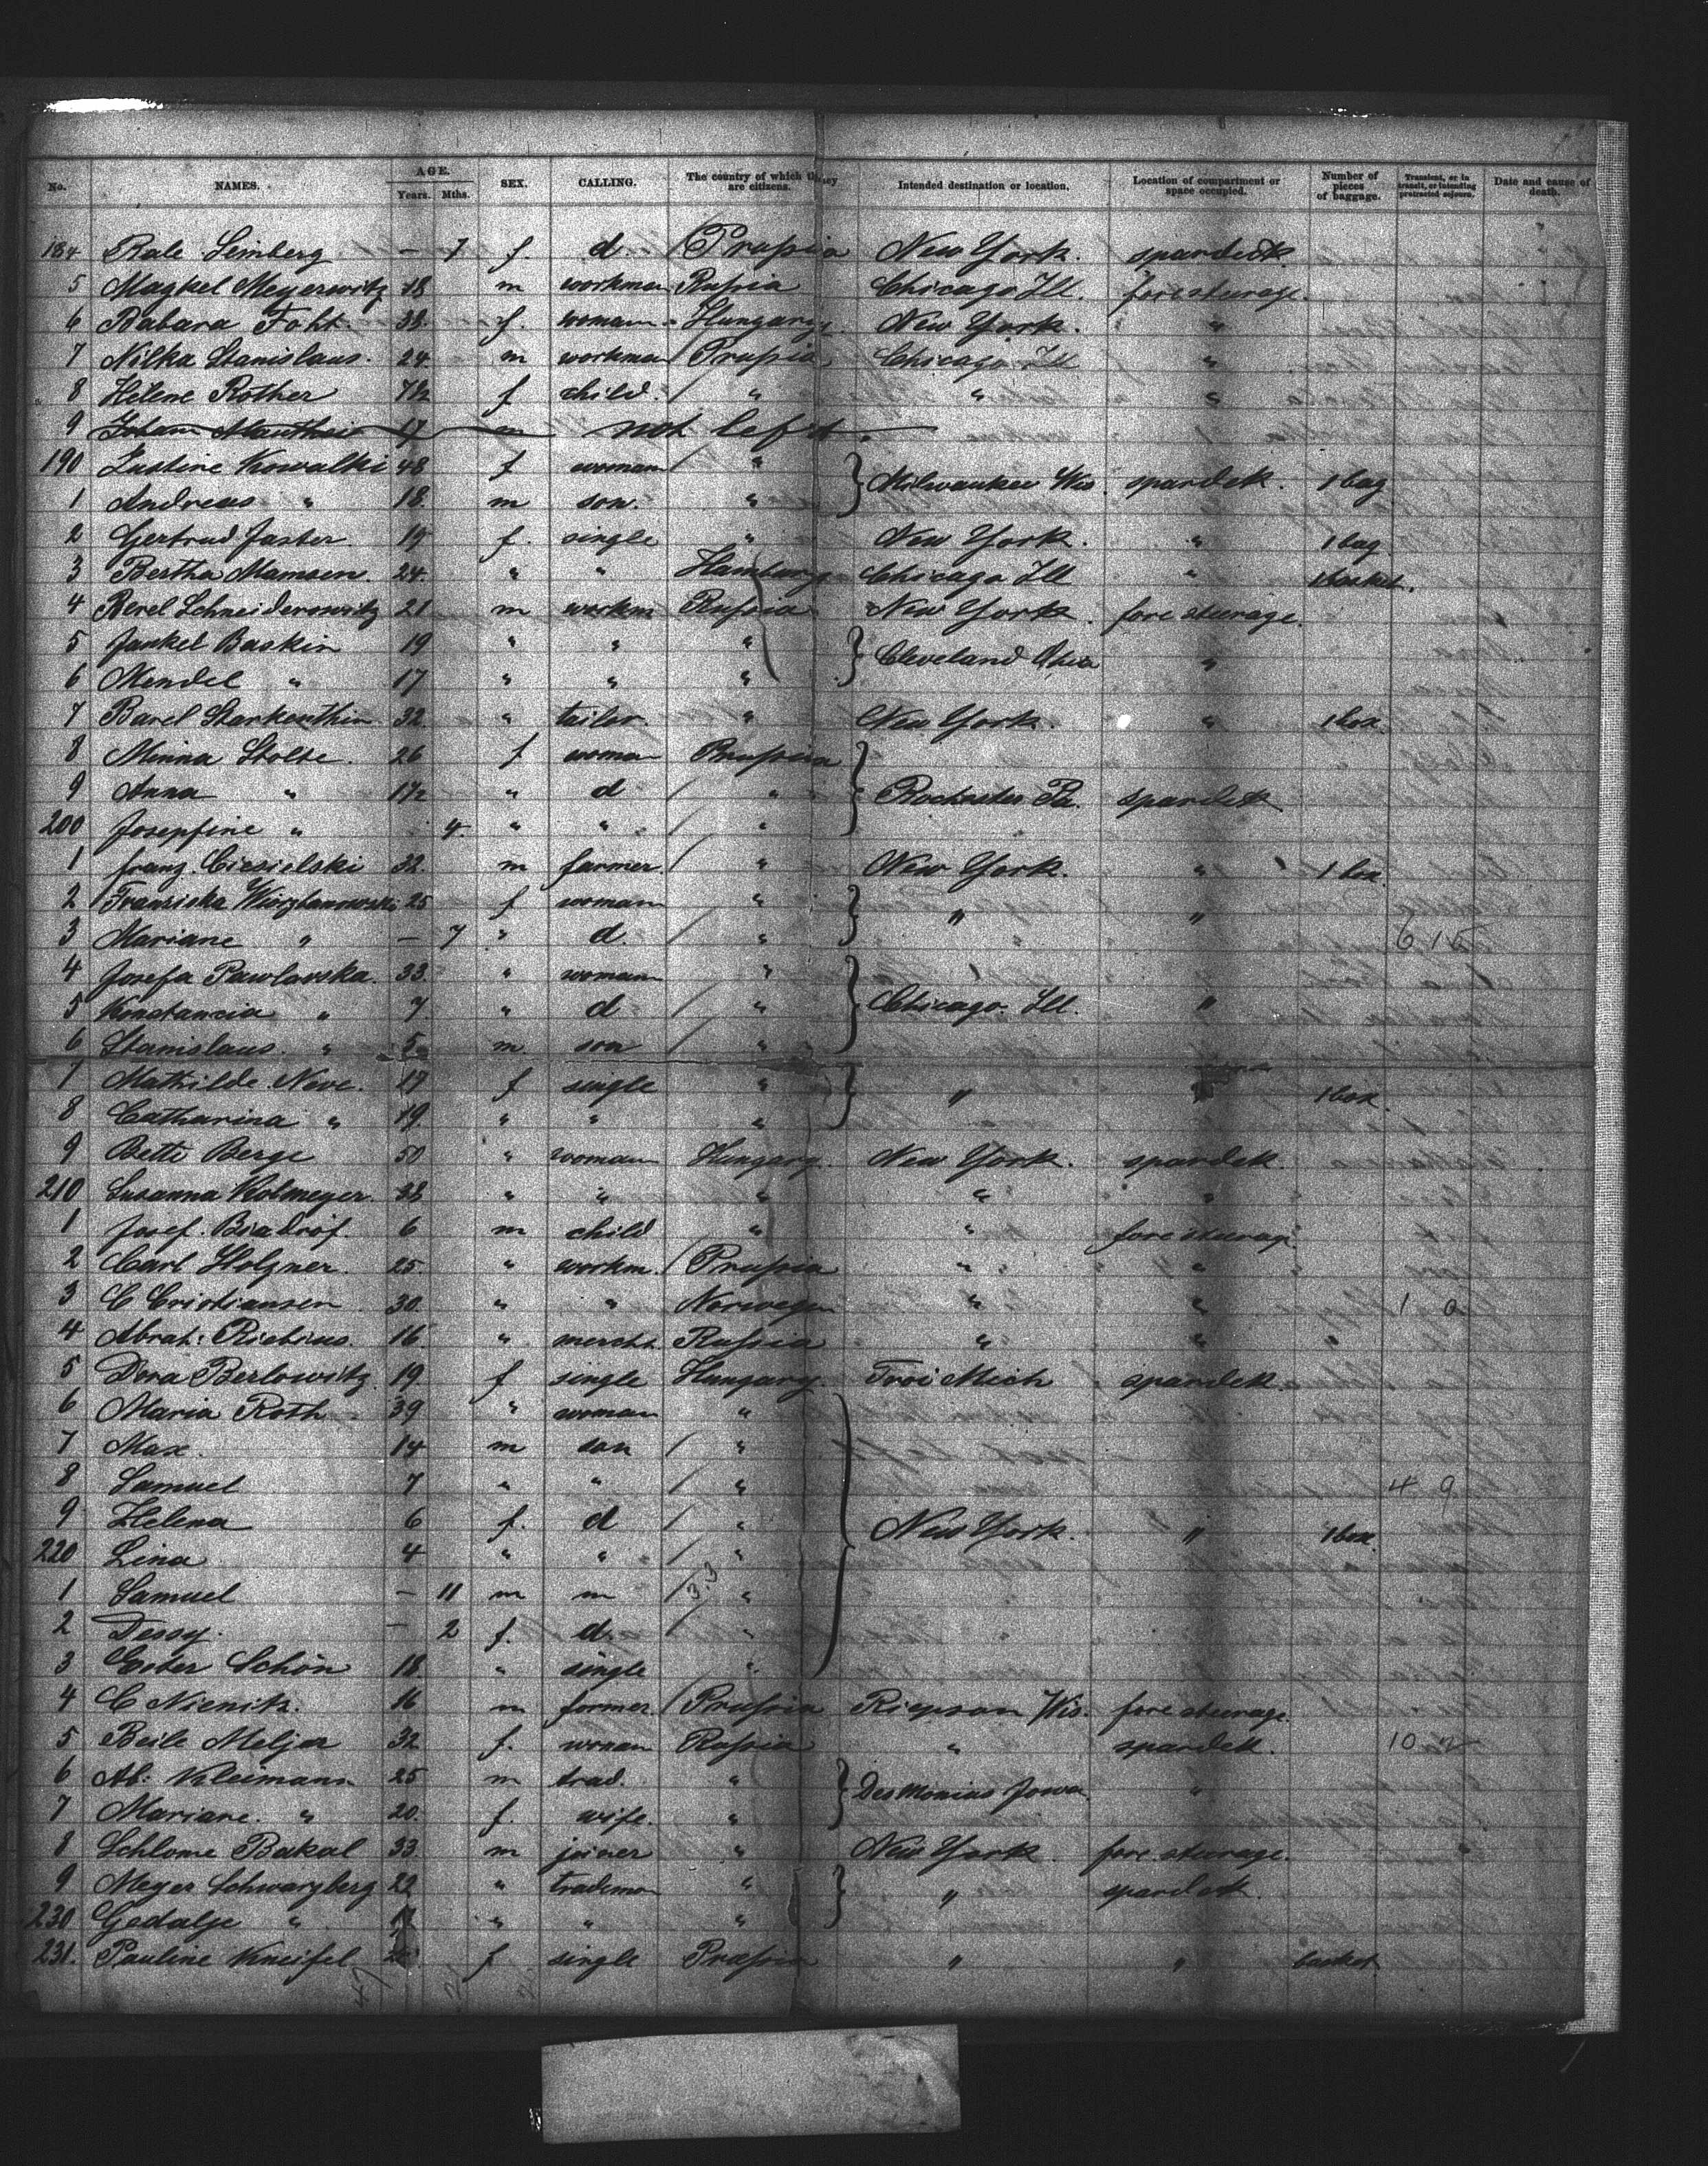 No. NAMES. AGE. Years. Mths. SEX. CALLING. The country of which they are citizens. Intended destination or location. Location of compartment or space occupied. Number of pieces of baggage. Transient, or in transit, or intending protracted sojourn. Date and cause of death.
184 Rale Leinberg — 7 f. d. Prussia New York. spardeck
5 Maykel Meyerowitz 18 m workman Russia Chicago Ill. fore steerage.
6 Babara Foht 38. f. woman Hungary New York. "
7 Nilka Stanislaus. 24. m workman Prussia Chicago Ill "
8 Helene Rother 7½ f child. " " "
9 Johann 17 m not left.
190 Justine Kowalski 48 f woman " Milwaukee Wis. spardek. 1 bag
1 Andreas " 18. m son. "
2 Gertrud Jaster. 19 f. single " New York. " 1 bag
3 Bertha Mamsen. 24. " " Hamburg Chicago Ill " 1 basket.
4 Berel Schneiderowitz 21 m workm Russia New York. fore steerage.
5 Jankel Baskin 19 " " " Cleveland Ohio "
6 Mendel " 17 " " "
7 Barel Starkenthin 32 " tailor. " New York. " 1 box.
8 Minna Stolte. 26 f woman Prussia
9 Anna " 1½ " d " Rochester Pa. spardek
200 Josepfine " 4. " " "
1 franz. Ciesielski 32. m farmer. " New York. " 1 box.
2 25 f woman " " "
3 Mariane " — 7 " d. " 6 15
4 Josefa Pawlowska. 33. " woman "
5 Konstancia " 7 " d " Chicago Ill. "
6 Stanislaus. " 5 m. son "
7 Mathilde Neve. 17 f single " " 1 box.
8 Catharina " 19. " " "
9 Betti Berge 50 " woman Hungary. New York. spardek.
210 Susanna Kolmeyer. 38 " " " " "
1 Josef. 6 m child " " fore steerage.
2 Carl Holzner. 25. " workm. Prussia " "
3 C Cristiansen 30. " " Norwegen " " 1 0
4 Abrah: 16. " mercht. Russia " " "
5 Dora Berlowitz 19 f single Hungary. Troi Mich spardek.
6 Maria Roth 39 " woman "
7 Max. 14 m son "
8 Samuel 7 " " " 4 9
9 Helena 6 f. d " New York. " 1 box.
220 Lina 4 " " "
1 Samuel — 11 m m 3.3 "
2 Dessy. — 2 f. d. "
3 Ester Schön 18. " single "
4 C Nienitz. 16 m former Prussia Riepson Wis. fore steerage.
5 Beile Meljar 32 f. woman Russia " spardek. 10
6 Ab: Kleimann 25 m trad. " Des Monius Jowa. "
7 Mariane. " 20. f. wife. "
8 Schlome Bakal 33. m joiner " New York. fore steerage.
9 Meyer Schwarzberg 22 " trademan " " spardek.
230 Gedalge " " " "
231. Pauline Kneifel f single Prussia " " basket.
47